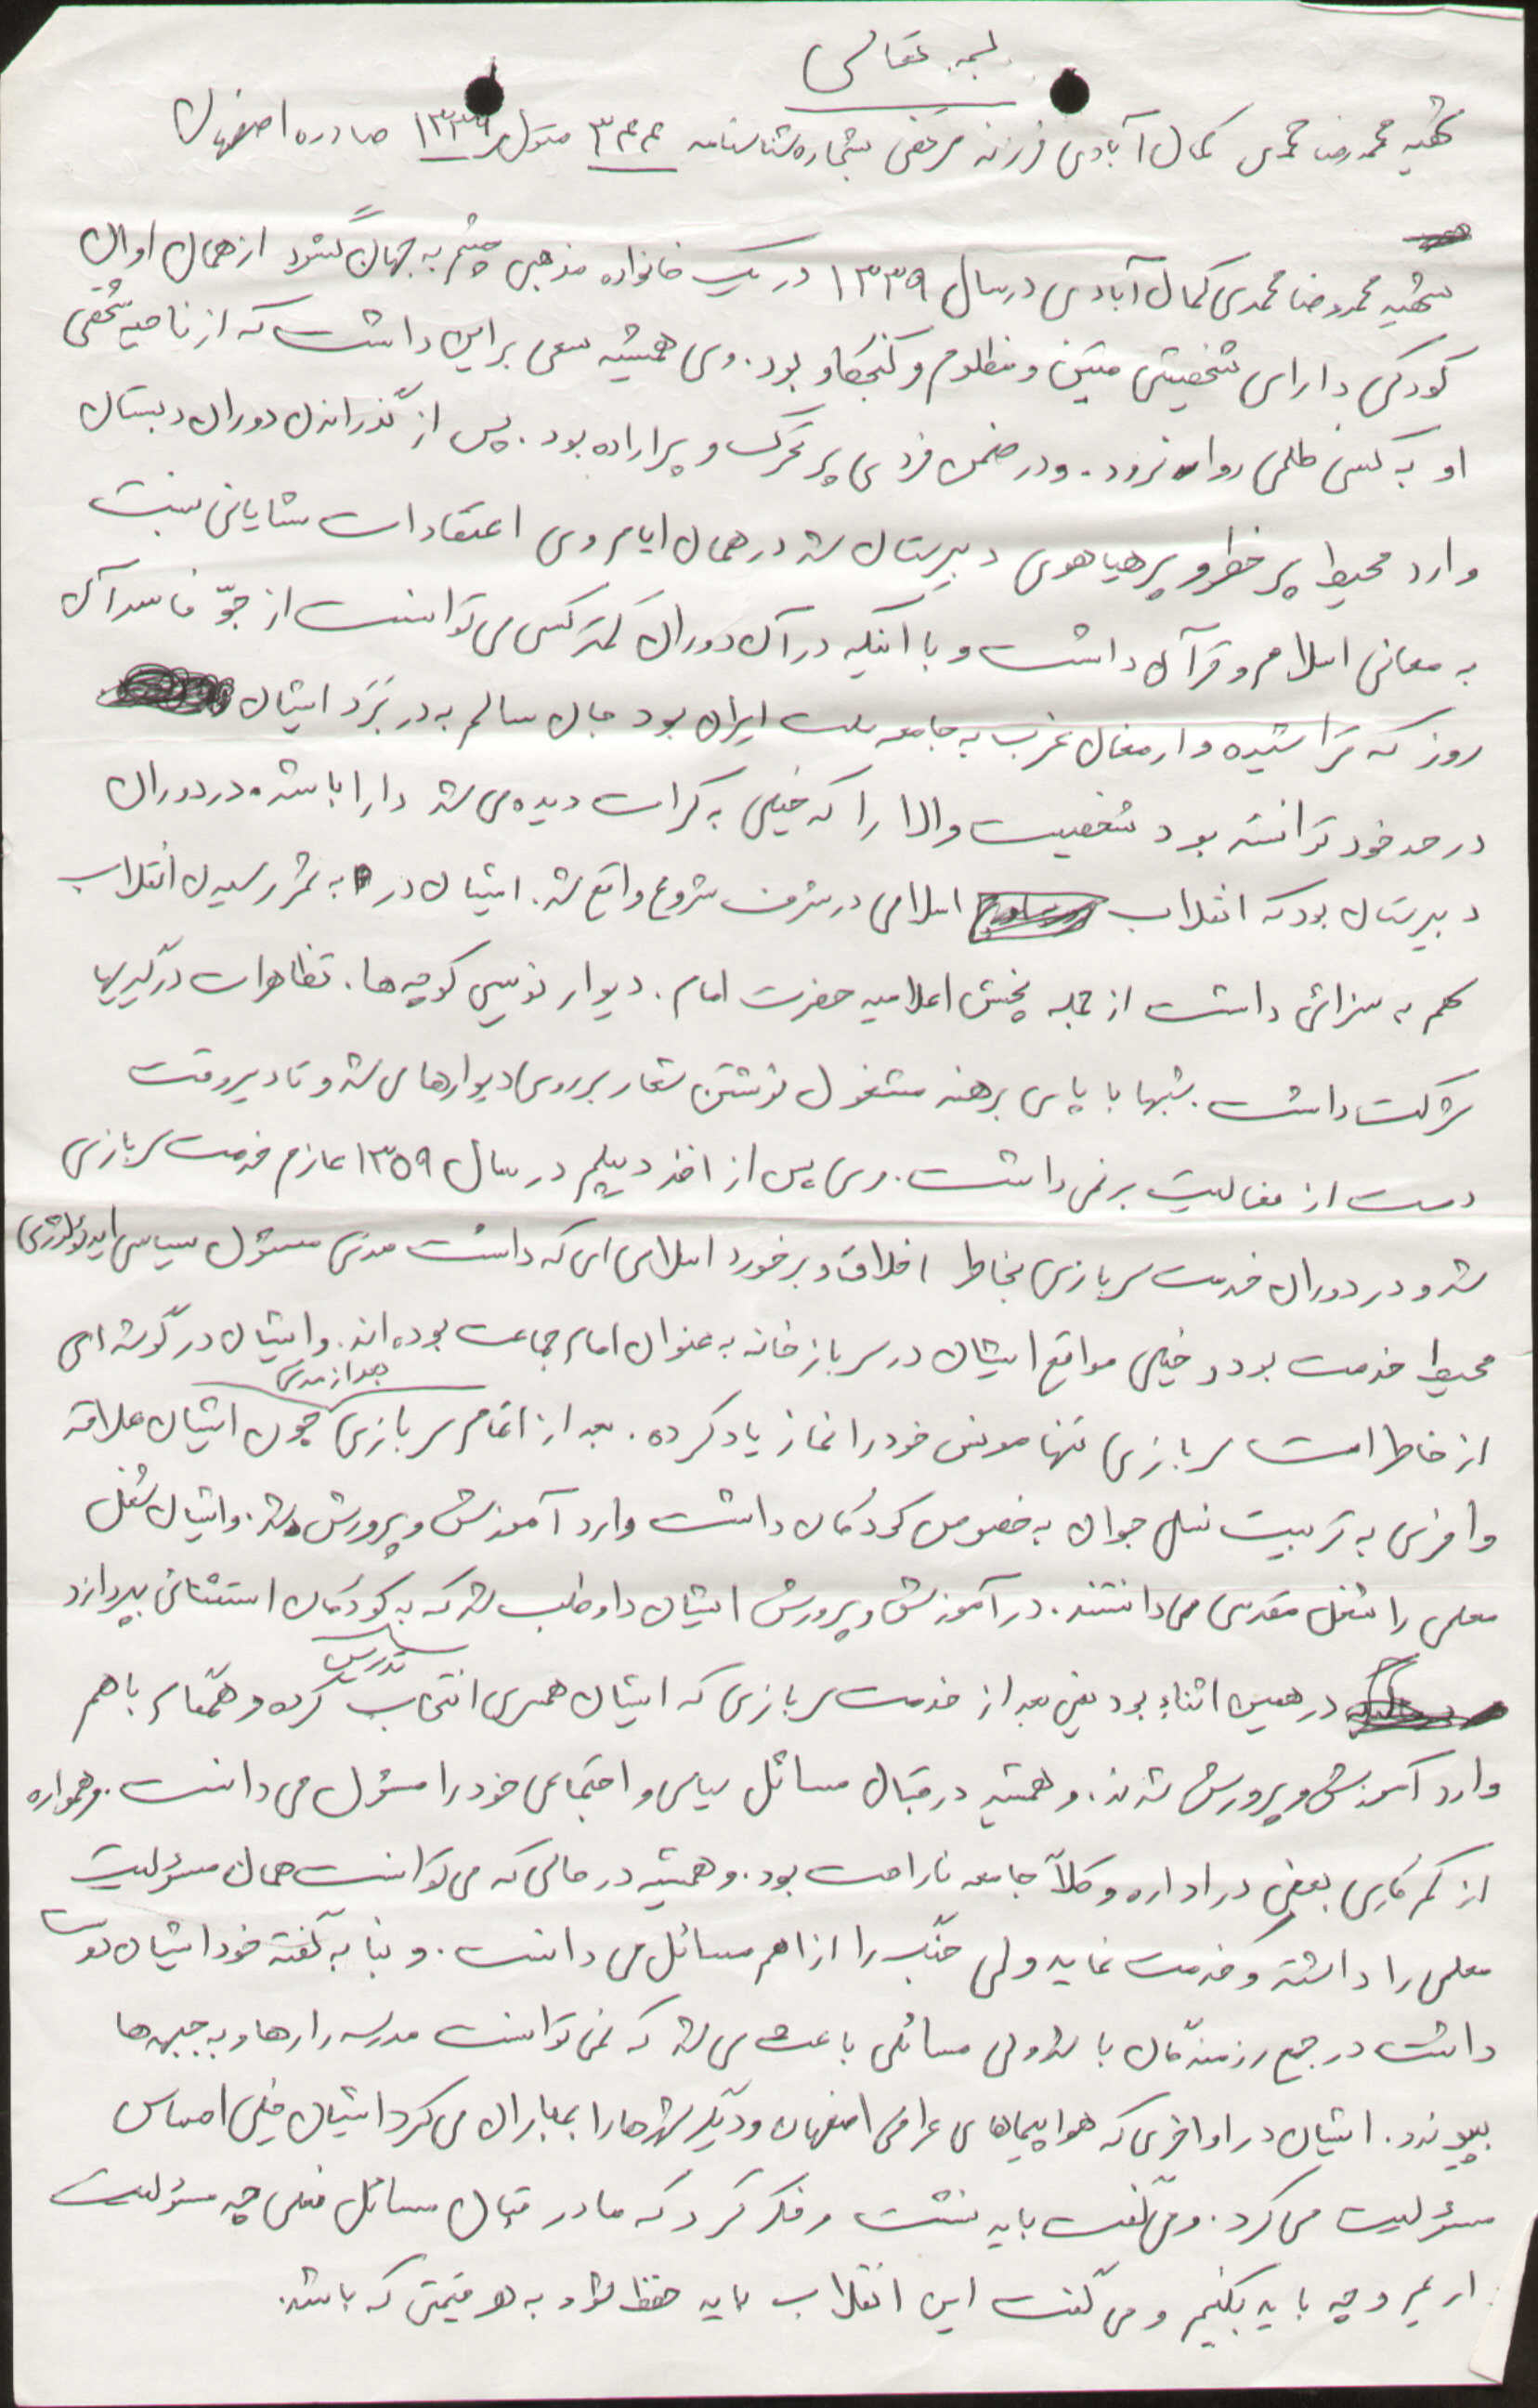 بسمه تعالی
شهید محمدرضا محمدی کمال آبادی فرزند مرتضی بشماره شناسنامه ۳۴۴ متولد ۱۳۳۹ صادره اصفهان
شهید محمدرضا محمدی کمال آبادی در سال ۱۳۳۹ در یک خانواده مذهبی چشم به جهان گشود از همان اوان
کودکی دارای شخصیتی متین و مظلوم و کنجکاو بود. وی همیشه سعی بر این داشت که از ناحیه شخص
او به کسی ظلمی روا نرود. و در ضمن فردی پر تحرک و پر اراده بود. پس از گذراندن دوران دبستان
وارد محیط پر خطر و پر هیاهوی دبیرستان شد در همان ایام وی اعتقادات شایانی نسبت
به معانی اسلام و قرآن داشت و با آنکه در آن دوران کمتر کسی می توانست از جوّ فاسد آن
روز که تراشیده و ارمغان غرب به جامعه ملت ایران بود جان سالم به در بَرَد ایشان
در حد خود توانسته بود شخصیت والا را که خیلی به کرات دیده می شد دارا باشد. در دوران
دبیرستان بود که انقلاب اسلامی در شرف شروع واقع شد. ایشان در به ثمر رسیدن انقلاب
سهم به سزائی داشت از جمله پخش اعلامیه حضرت امام. دیوار نویسی کوچه ها. تظاهرات درگیریها
شرکت داشت. شبها با پای برهنه مشغول نوشتن شعار بر روی دیوارها می شد و تا دیر وقت
دست از فعالیت بر نمی داشت. وی پس از اخذ دیپلم در سال ۱۳۵۹ عازم خدمت سربازی
شد و در دوران خدمت سربازی بخاطر اخلاق و برخورد اسلامی ای که داشت مدتی مسئول سیاسی ایدئولوژی
محیط خدمت بود و خیلی مواقع ایشان در سرباز خانه به عنوان امام جماعت بوده اند. و ایشان در گوشه ای
از خاطرات سربازی تنها مونس خود را نماز یاد کرده. بعد از اتمام سربازی بعد از مدتی چون ایشان علاقه
وافری به تربیت نسل جوان به خصوص کودکان داشت وارد آموزش و پرورش شد. و ایشان شغل
معلمی را شغل مقدسی می دانستند. در آموزش و پرورش ایشان داوطلب شد که به کودکان استثنائی بپردازد
در همین اثناء بود یعنی بعد از خدمت سربازی که ایشان همسری انتخاب کرده و همگام با هم
وارد آموزش و پرورش شدند. و همیشه در قبال مسائل سیاسی و اجتماعی خود را مسئول می دانست. و همواره
از کم کاری بعضی در اداره و کلاً جامعه ناراحت بود. و همیشه در حالی که می توانست همان مسئولیت
معلمی را داشته و خدمت نماید ولی جنگ را از اهم مسائل می دانست. و بنا به گفته خود ایشان دوست
داشت در جمع رزمندگان باشد ولی مسائلی باعث می شد که نمی توانست مدرسه را رها و به جبهه ها
بپیوندد. ایشان در اواخری که هواپیماهای عراقی اصفهان و دیگر شهرها را بمباران می کرد ایشان خیلی احساس
مسئولیت می کرد. و می گفت باید نشست و فکر کرد که ما در قبال مسائل فعلی چه مسئولیت
داریم و چه باید بکنیم و می گفت این انقلاب باید حفظ شود به هر قیمتی که باشد.